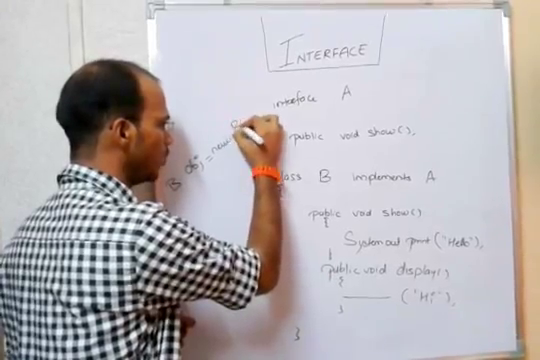 INTERFACE
interface A
public void show();
B obj = new
class B implements A
{
public void show()
{
System.out.print ("Hello");
}
public void display()
{
——— ("Hi");
}
}